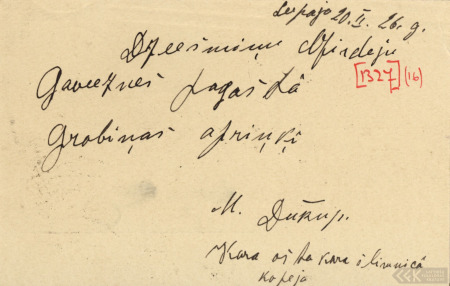 Liepaja 20. II. 26. g.
Dzeesmiņu
[1327] (16)
Gaveeznes pagastā
Grobiņas apriņķī
M. Dukup.
Kara ostas kara slimnīcā
kopeja